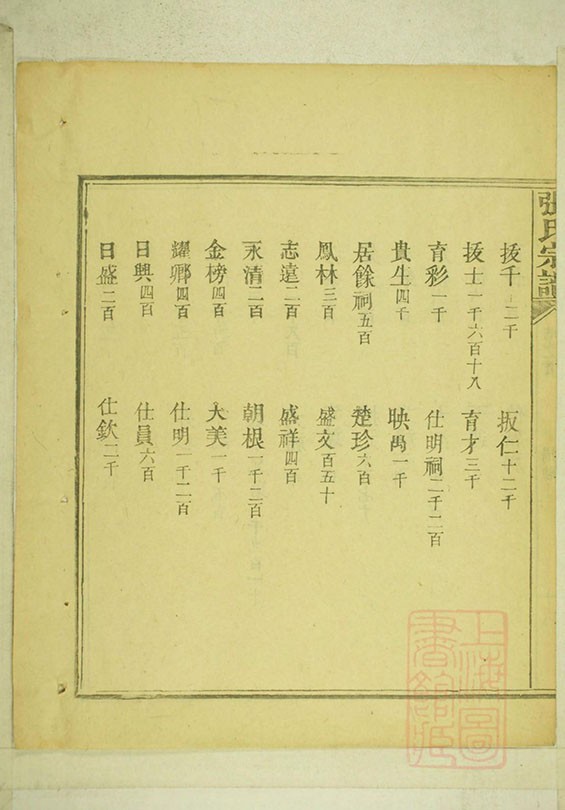 張氏宗譜
拔千十二千 扳仁十二千
拔士一千六百十八 育才三千
育彩一千 仕明祠二千二百
貴生四千 映禼一千
居餘祠五百 楚珍六百
鳳林三百 盛文百五十
志遠二百 盛祥四百
永清二百 朝根一千二百
金榜四百 大美一千
耀卿四百 仕明一千二百
日興四百 仕員六百
日盛二百 仕欽二千
上海圖書館